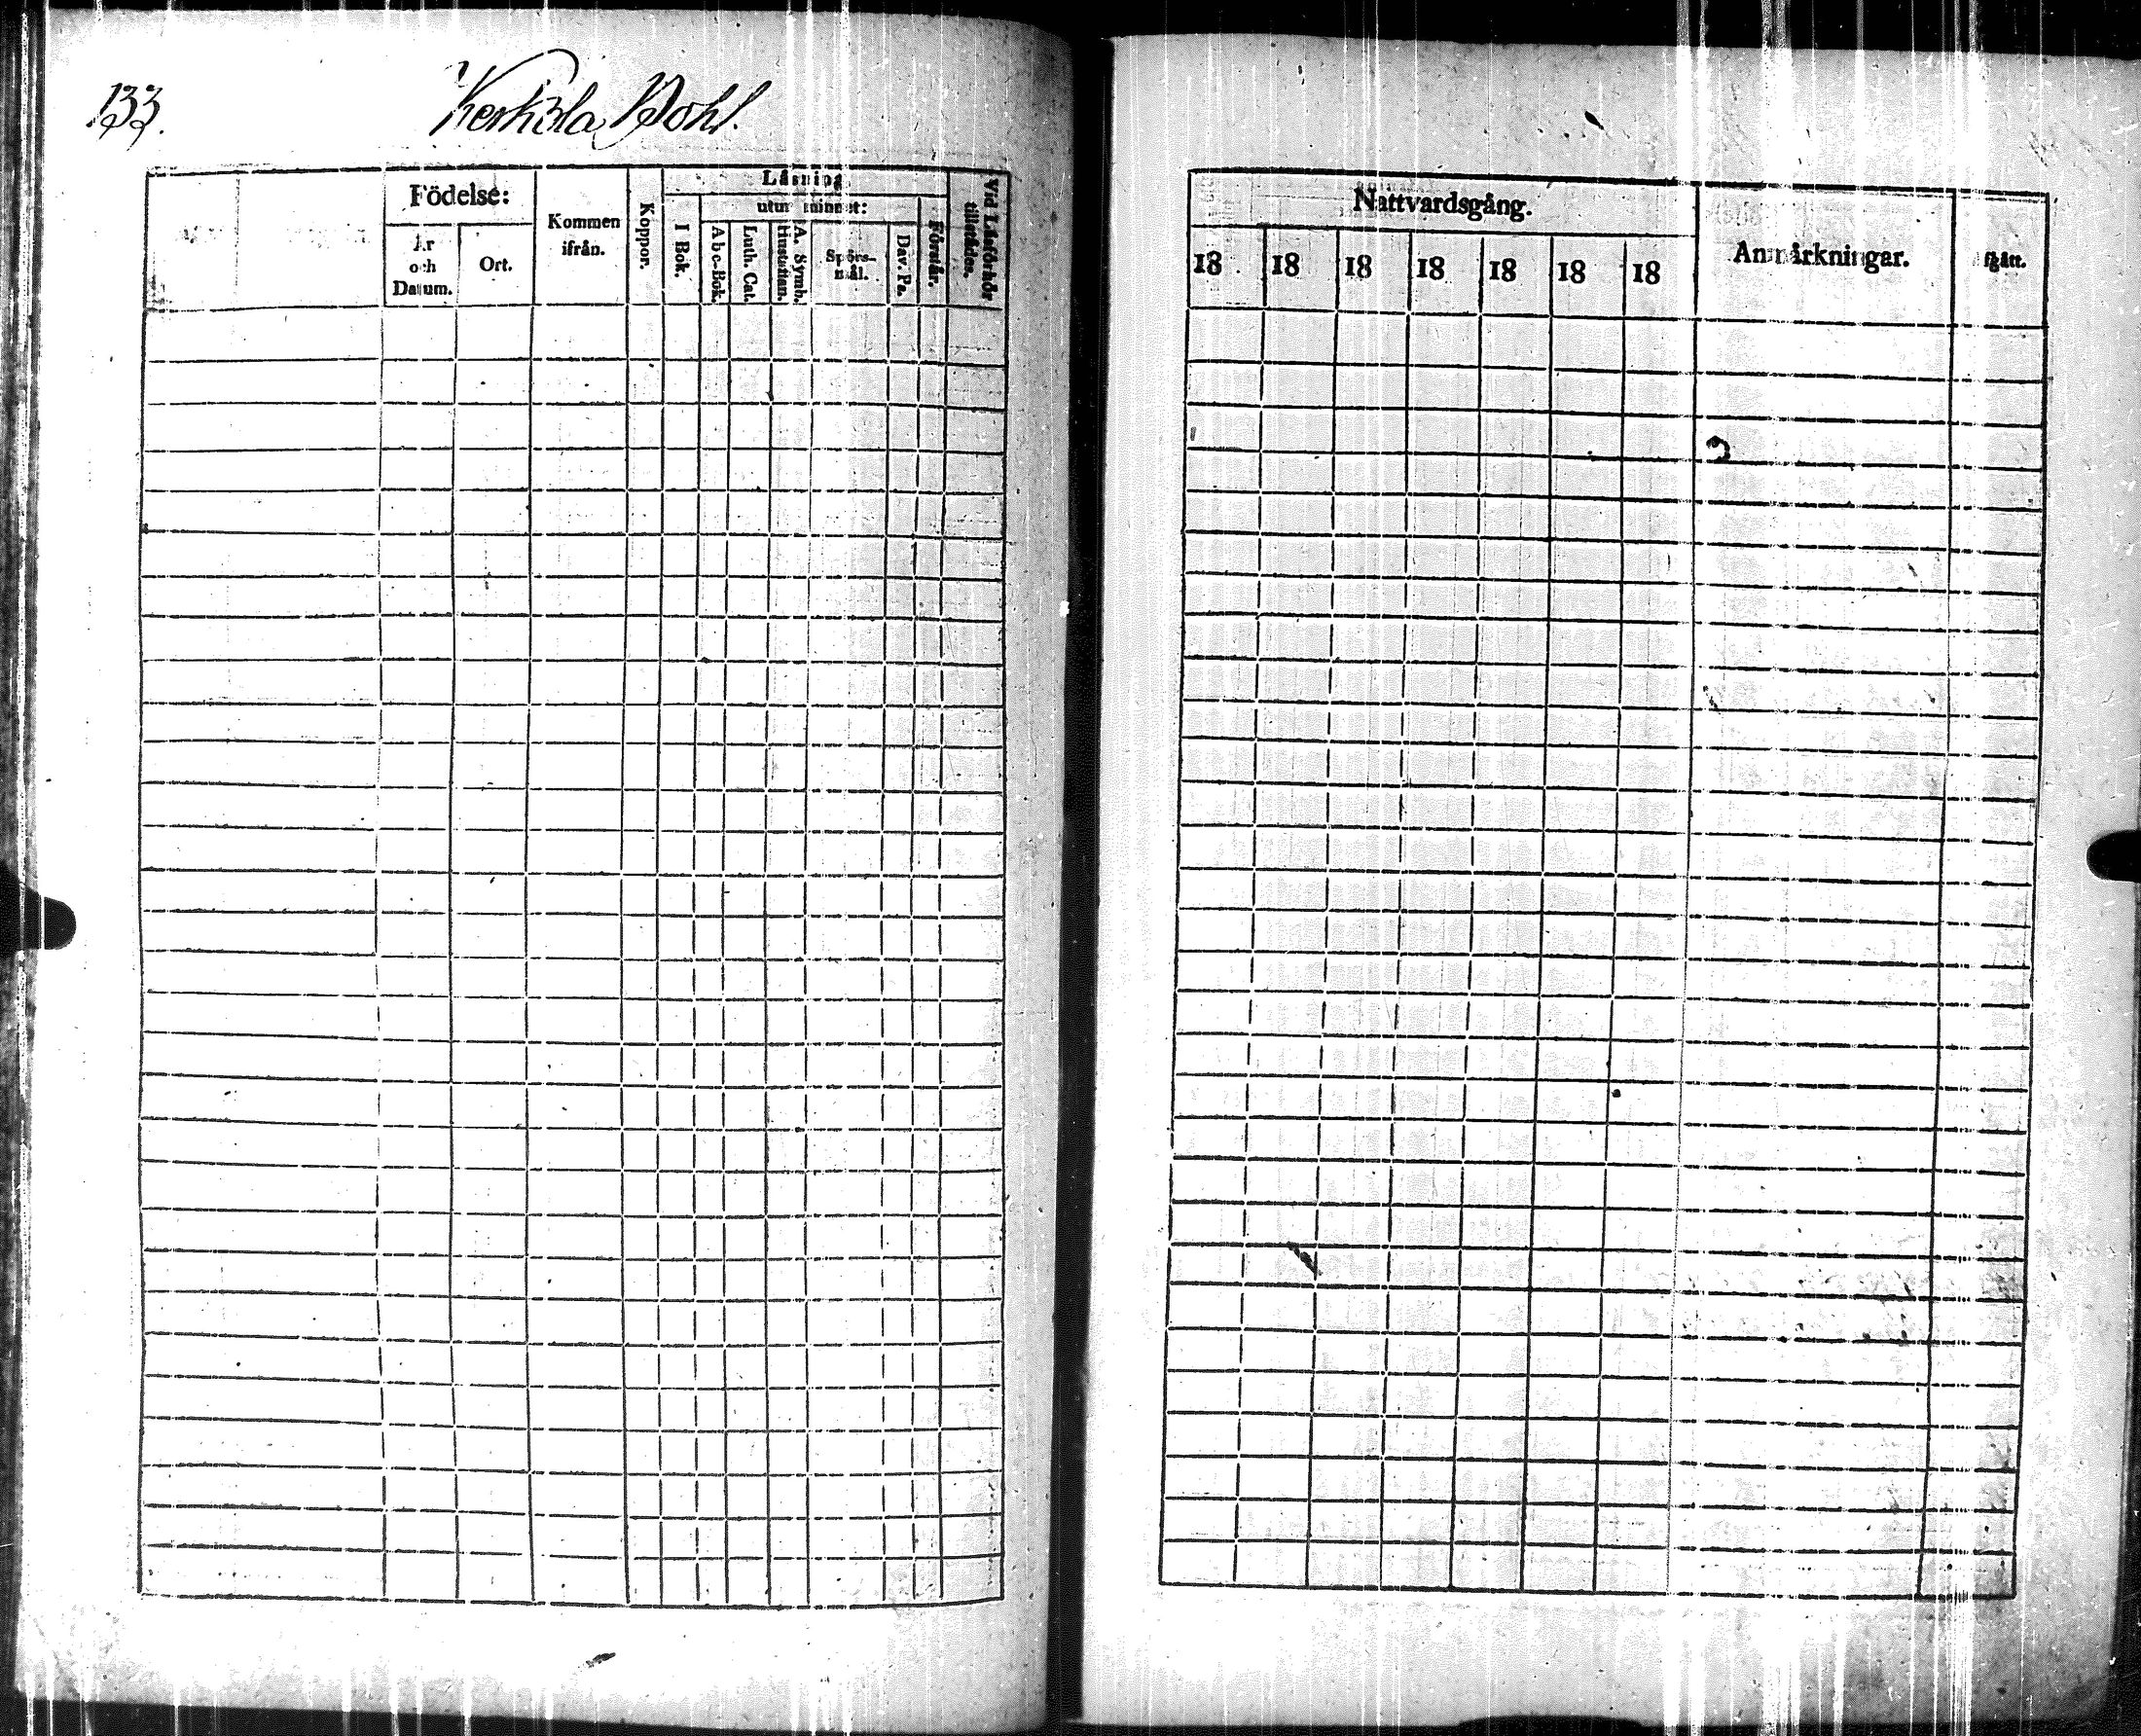 133.
Kerkola Bohl.
Födelse:
Kommen
ifrån.
Koppor.
Läsning
utur minnet:
Vid Läsförhör
tillstädes.
År
och
Datum.
Ort.
I Bok.
Abc-Bok.
Luth. Cat.
A. Symb.
Hustaflan.
Spörs-
mål.
Dav. Ps.
Förstår.
Nattvardsgång.
Anmärkningar.
Afgått.
18 18 18 18 18 18 18